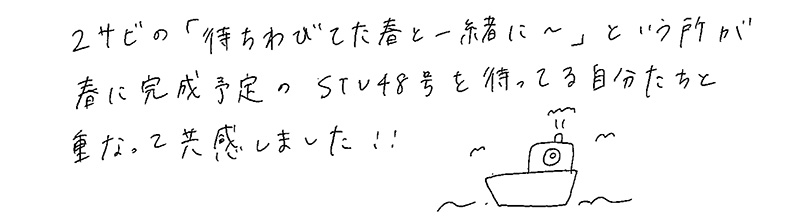 2サビの「待ちわびてた春と一緒に～」という所が
春に完成予定の STU48号を待ってる自分たちと
重なって共感しました!!